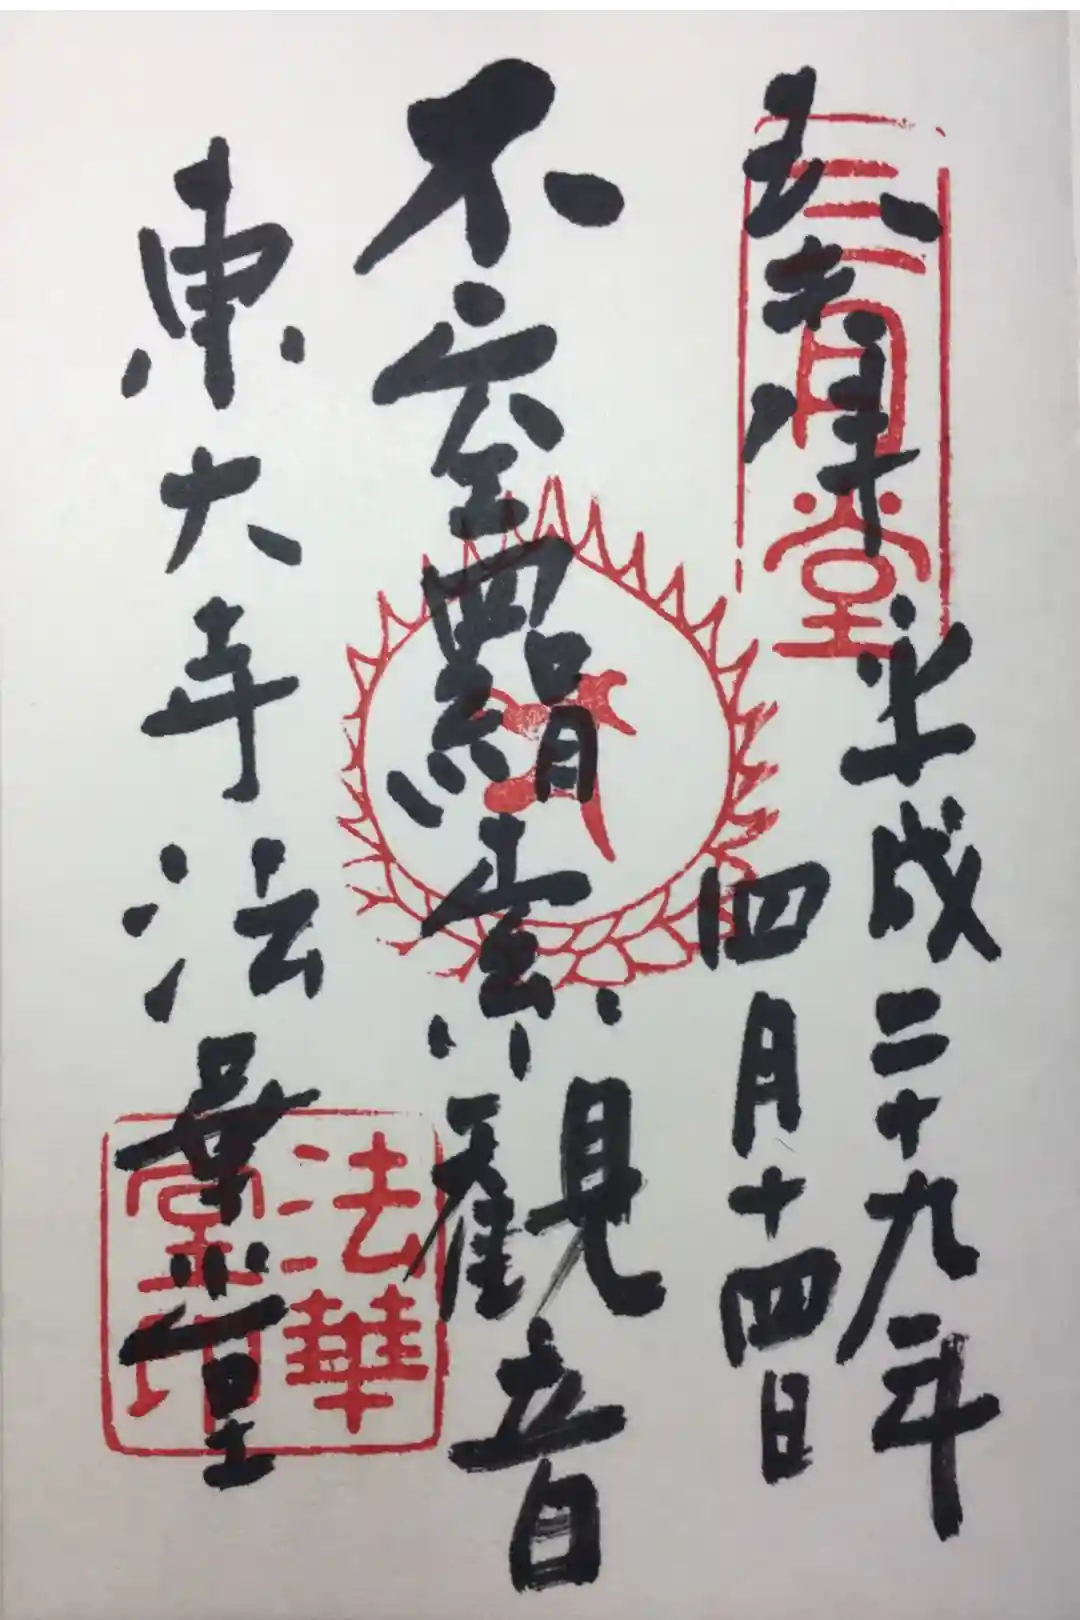 奉拝
三月堂
平成二十九年
四月十四日
不空羂索観音
東大寺法華堂
法華
堂印